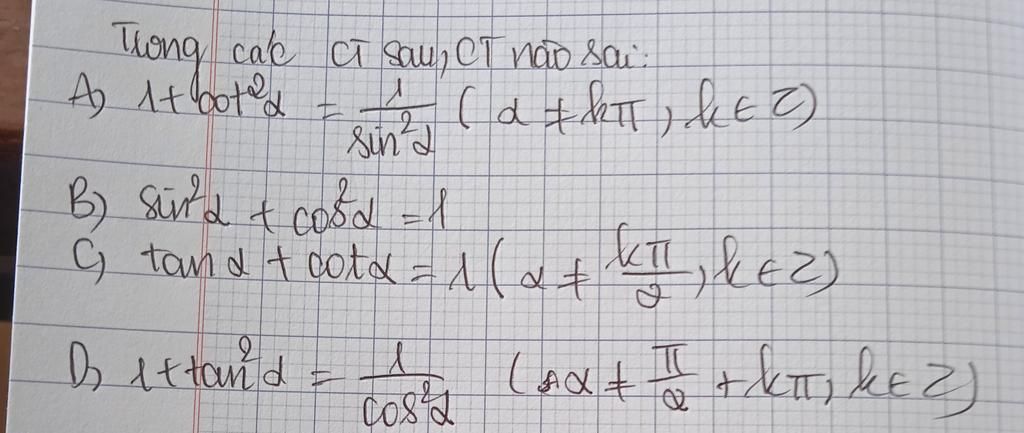 Trong các CT sau, CT nào sai:
A) 1+cot²α = 1/sin²α (α ≠ kπ, k ∈ Z)
B) sin²α + cos²α = 1
C) tan α + cotα = 1 (α ≠ kπ/2, k ∈ Z)
D) 1+tan²α = 1/cos²α (α ≠ π/2 + kπ, k ∈ Z)